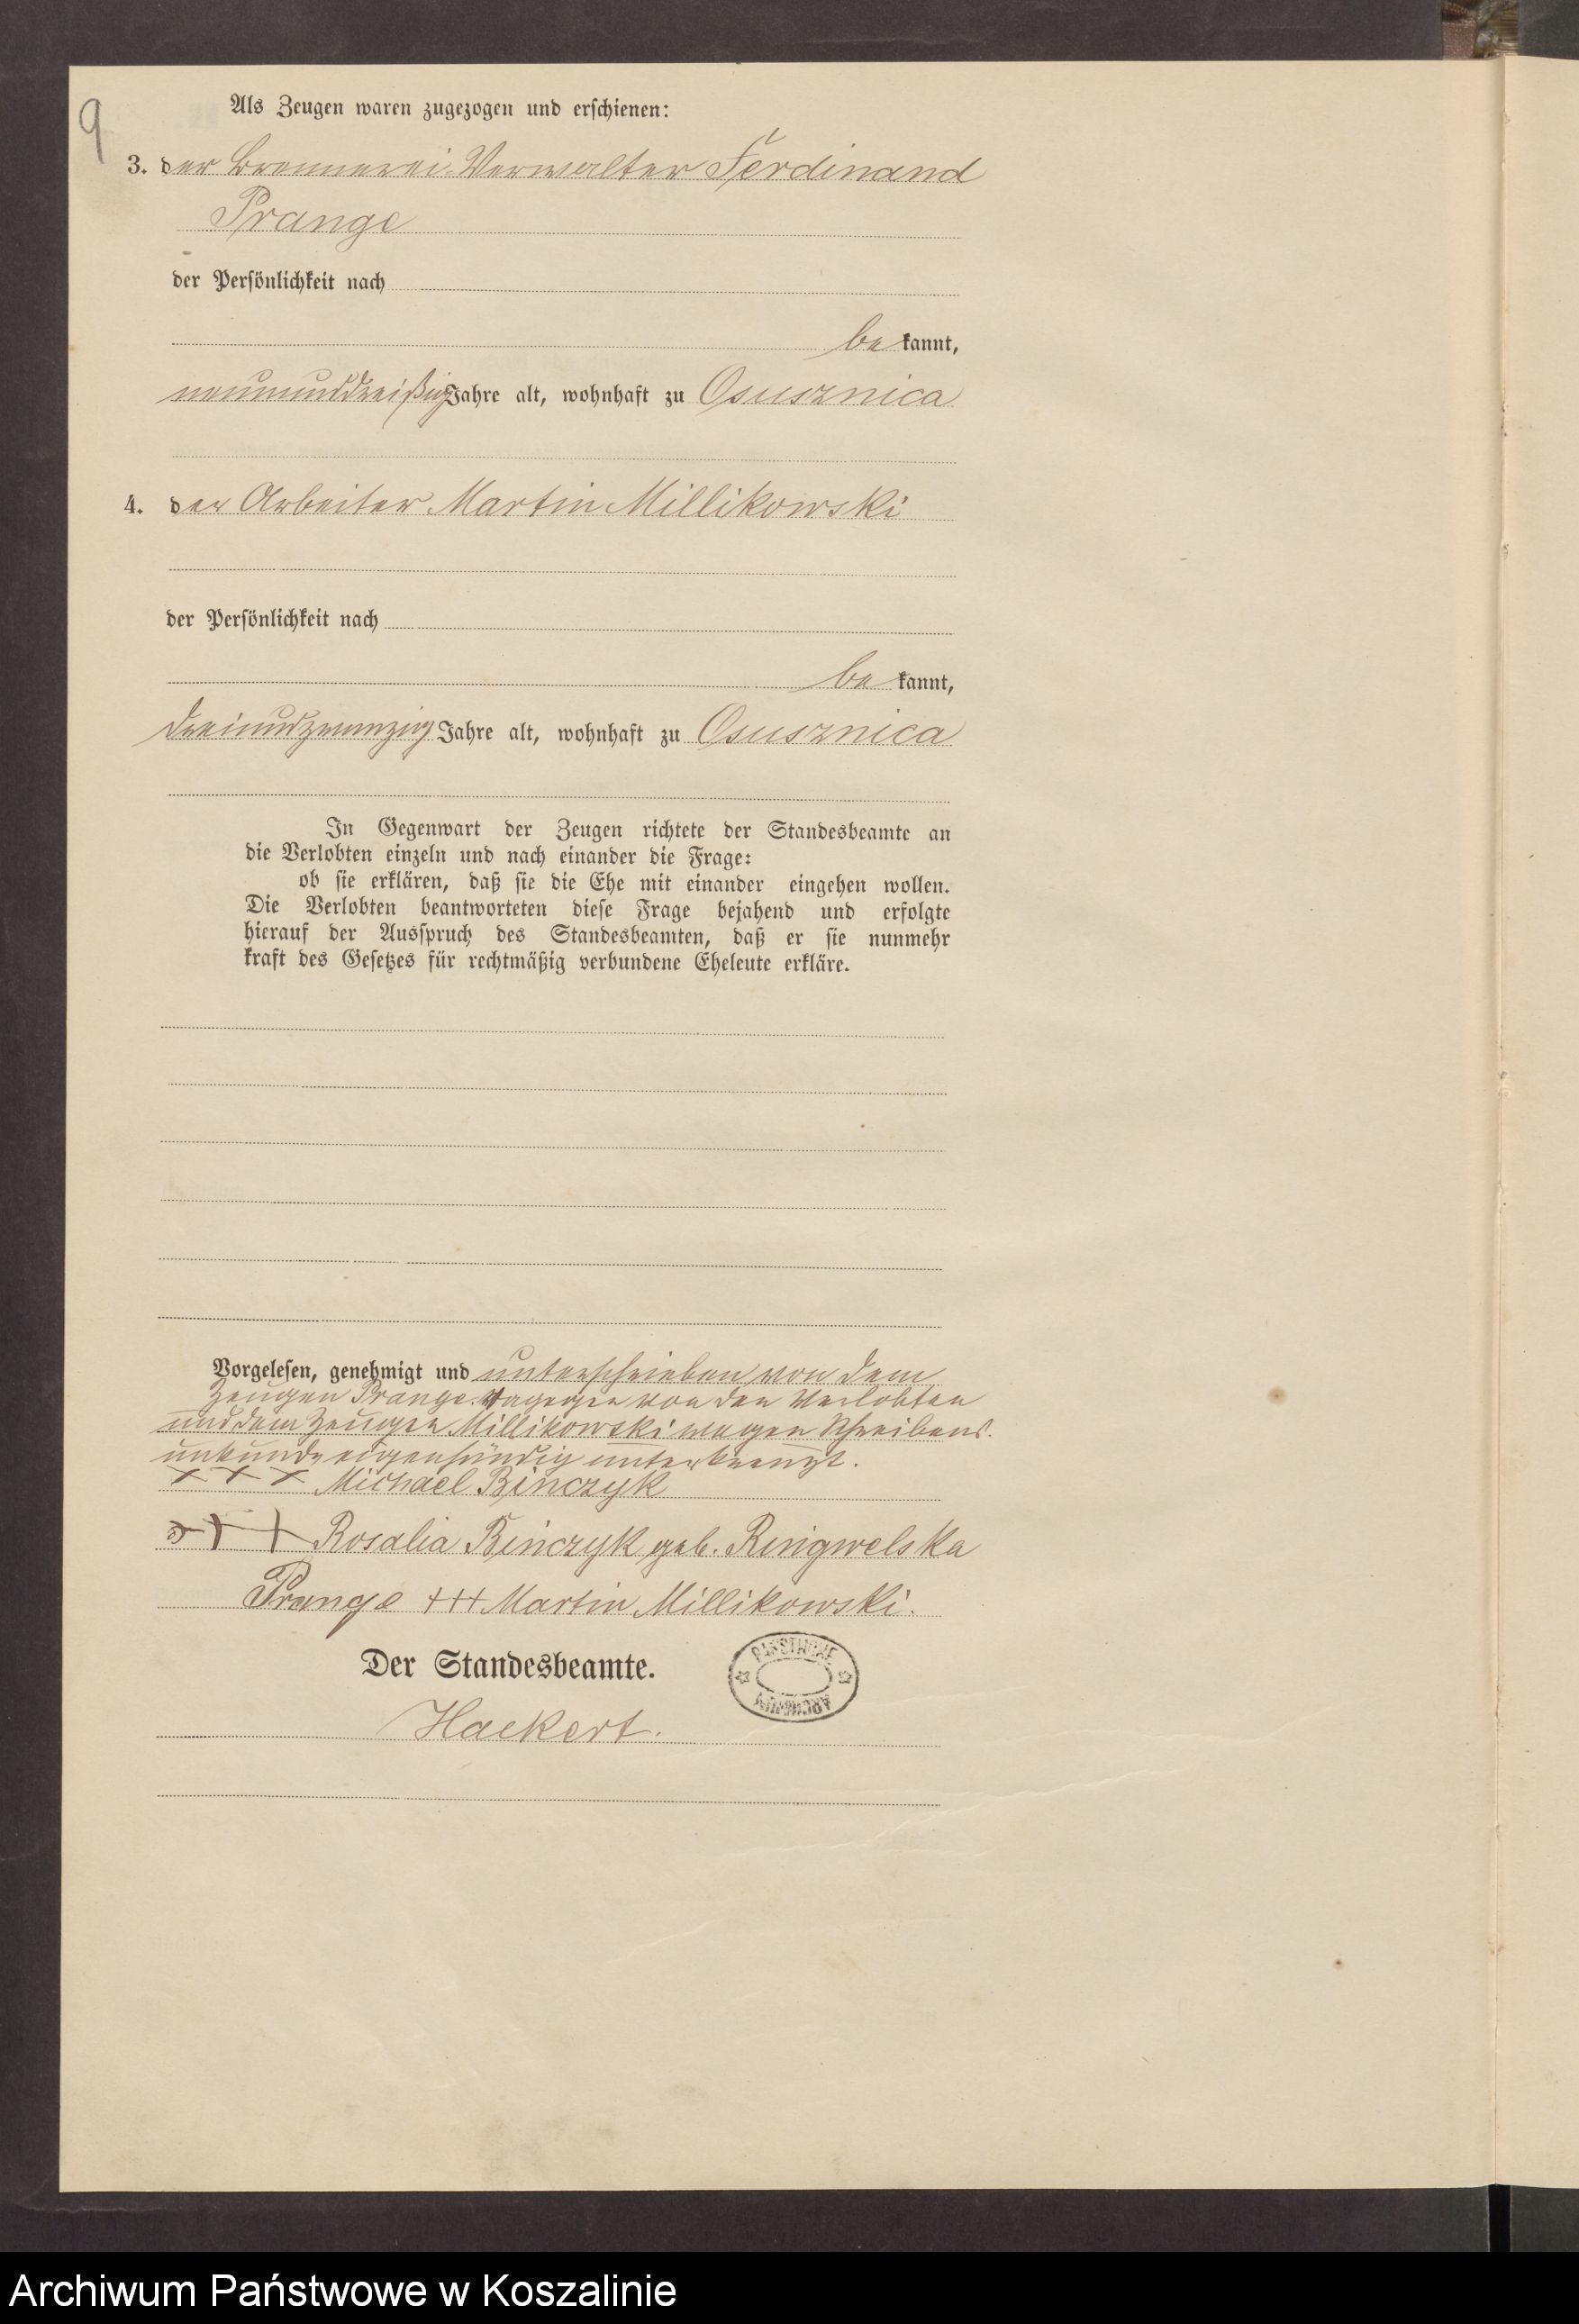 9
Als Zeugen waren zugezogen und erschienen:
3. der Brennerei-Verwalter Ferdinand
Prange
der Persönlichkeit nach
be kannt,
neununddreißig Jahre alt, wohnhaft zu Osusznica
4. der Arbeiter Martin Millikowski
der Persönlichkeit nach
be kannt,
dreiundzwanzig Jahre alt, wohnhaft zu Osusznica
In Gegenwart der Zeugen richtete der Standesbeamte an
die Verlobten einzeln und nach einander die Frage:
ob sie erklären, daß sie die Ehe mit einander eingehen wollen.
Die Verlobten beantworteten diese Frage bejahend und erfolgte
hierauf der Ausspruch des Standesbeamten, daß er sie nunmehr
kraft des Gesetzes für rechtmäßig verbundene Eheleute erkläre.
Vorgelesen, genehmigt und unterschrieben von dem
Zeugen Prange. dagegen von den Verlobten
und dem Zeugen Millikowski wegen Schreibens-
unkunde eigenhändig unterkreuzt.
XXX Michael Binczyk
+++ Rosalia Binczyk geb. Ringwelska
Prange +++ Martin Millikowski.
Der Standesbeamte.
PAŃSTWOWE
ARCHIWUM
Hackert.
Archiwum Państwowe w Koszalinie